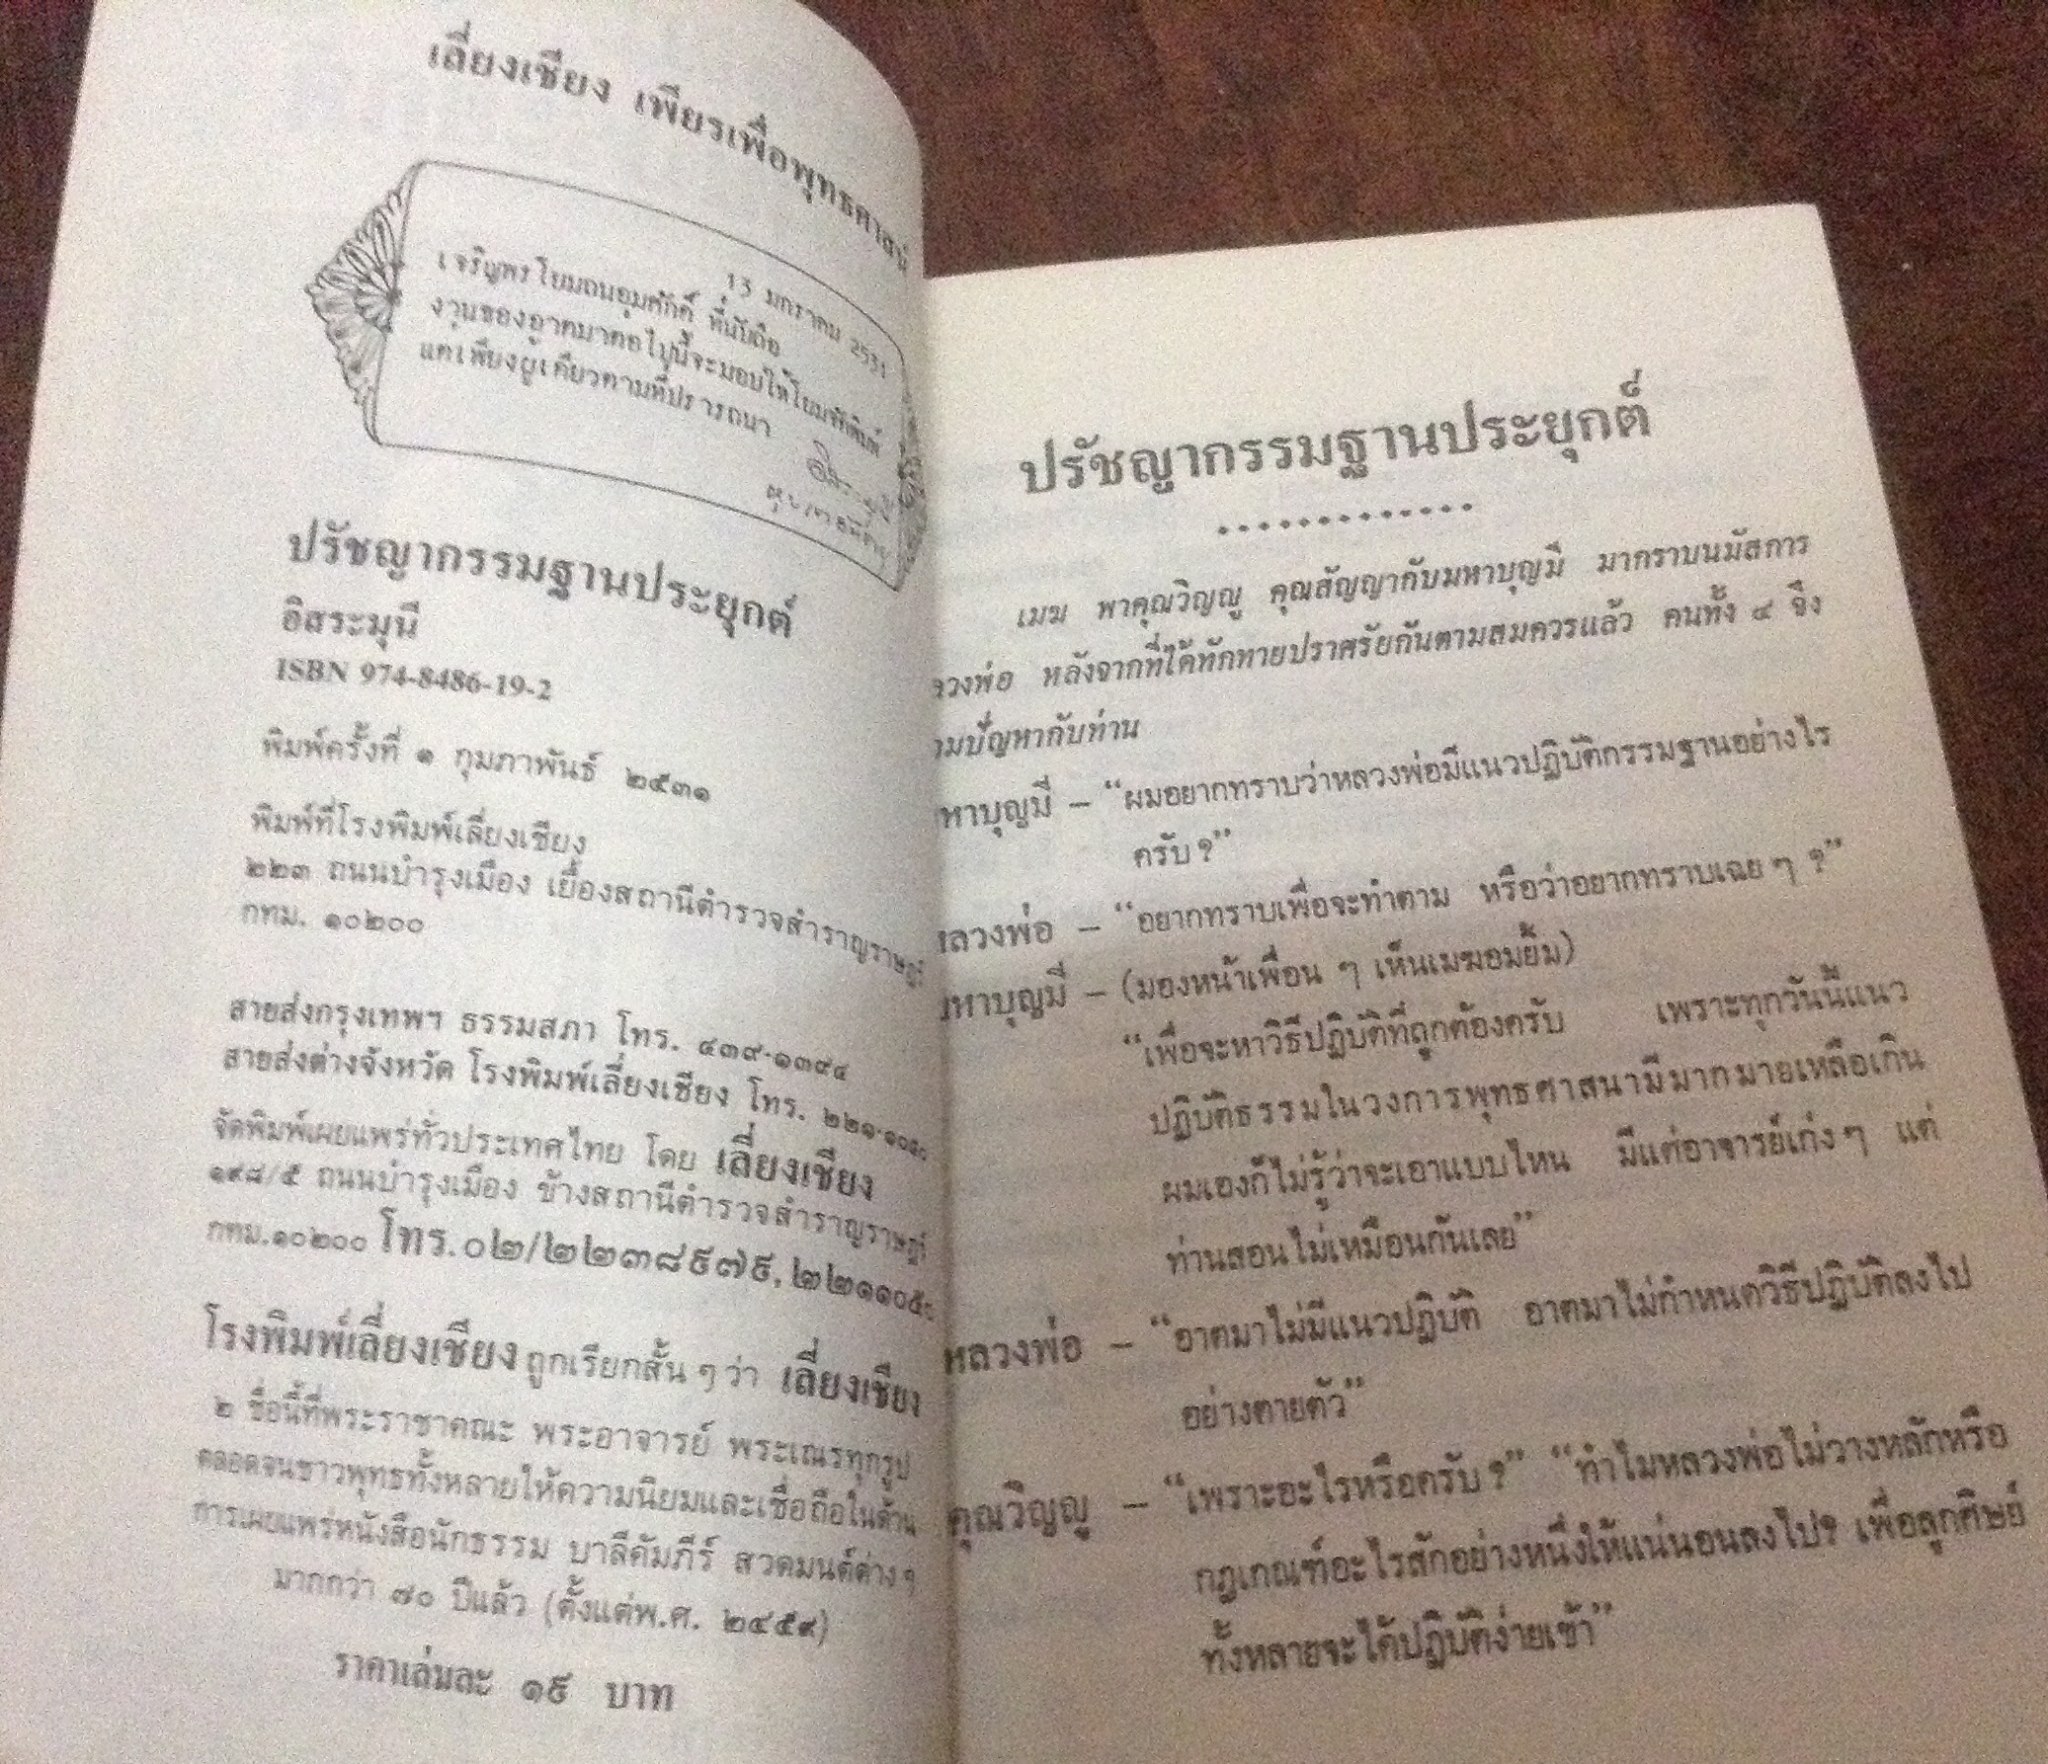 เลี่ยงเชียง เพียรเพื่อพุทธศาสน์
13 มกราคม 2531
เจริญพร โยมถนอมศักดิ์ ที่นับถือ
งานของอาตมาต่อไปนี้จะมอบให้โยมพิมพ์
แต่เพียงผู้เดียวตามที่ปรารถนา
อิสระมุนี
ปรัชญากรรมฐานประยุกต์
อิสระมุนี
ISBN 974-8486-19-2
พิมพ์ครั้งที่ ๑ กุมภาพันธ์ ๒๕๓๑
พิมพ์ที่โรงพิมพ์เลี่ยงเชียง
๒๒๓ ถนนบำรุงเมือง เยื้องสถานีตำรวจสำราญราษฎร์
กทม. ๑๐๒๐๐
สายส่งกรุงเทพฯ ธรรมสภา โทร. ๔๓๙-๑๓๙๔
สายส่งต่างจังหวัด โรงพิมพ์เลี่ยงเชียง โทร.
จัดพิมพ์เผยแพร่ทั่วประเทศไทย โดย เลี่ยงเชียง
๑๙๘/๕ ถนนบำรุงเมือง ข้างสถานีตำรวจสำราญราษฎร์
กทม.๑๐๒๐๐ โทร.๐๒/๒๒๓๘๕๗๕,
โรงพิมพ์เลี่ยงเชียง ถูกเรียกสั้น ๆ ว่า เลี่ยงเชียง
๒ ชื่อนี้ที่พระราชาคณะ พระอาจารย์ พระเณรทุกรูป
ตลอดจนชาวพุทธทั้งหลายให้ความนิยมและเชื่อถือในด้าน
การเผยแพร่หนังสือนักธรรม บาลีคัมภีร์ สวดมนต์ต่าง ๆ
มากกว่า ๗๐ ปีแล้ว (ตั้งแต่พ.ศ. ๒๔๕๙)
ราคาเล่มละ ๑๕ บาท
ปรัชญากรรมฐานประยุกต์
เมฆ พาคุณวิญญู คุณสัญญากับมหาบุญมี มากราบนมัสการ
ลวงพ่อ หลังจากที่ได้ทักทายปราศรัยกันตามสมควรแล้ว คนทั้ง ๔ จึง
ามปัญหากับท่าน
หาบุญมี – “ผมอยากทราบว่าหลวงพ่อมีแนวปฏิบัติกรรมฐานอย่างไร
ครับ ?”
หลวงพ่อ – “อยากทราบเพื่อจะทำตาม หรือว่าอยากทราบเฉย ๆ ?”
มหาบุญมี – (มองหน้าเพื่อน ๆ เห็นเมฆอมยิ้ม)
“เพื่อจะหาวิธีปฏิบัติที่ถูกต้องครับ เพราะทุกวันนี้แนว
ปฏิบัติธรรมในวงการพุทธศาสนามีมากมายเหลือเกิน
ผมเองก็ไม่รู้ว่าจะเอาแบบไหน มีแต่อาจารย์เก่ง ๆ แต่
ท่านสอนไม่เหมือนกันเลย”
หลวงพ่อ – “อาตมาไม่มีแนวปฏิบัติ อาตมาไม่กำหนดวิธีปฏิบัติลงไป
อย่างตายตัว”
คุณวิญญู – “เพราะอะไรหรือครับ ?” “ทำไมหลวงพ่อไม่วางหลักหรือ
กฎเกณฑ์อะไรสักอย่างหนึ่งให้แน่นอนลงไป? เพื่อลูกศิษย์
ทั้งหลายจะได้ปฏิบัติง่ายเข้า”